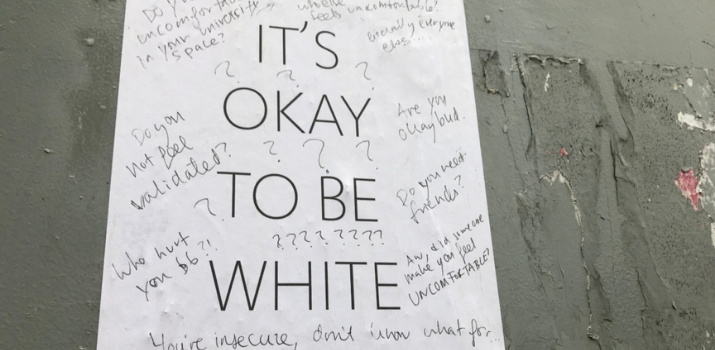 Do you
uncomfortable
in your university
space?
feels uncomfortable?
literally everyone
else...
IT'S
? ? ?
OKAY
Do you
not feel
validated?
Are you
okay bud.
? ? ?
TO BE
?
Do you need
friends?
????????
Who hurt
you bb?!
Aw, did someone
make you feel
UNCOMFORTABLE?
WHITE
You're insecure, don't know what for...